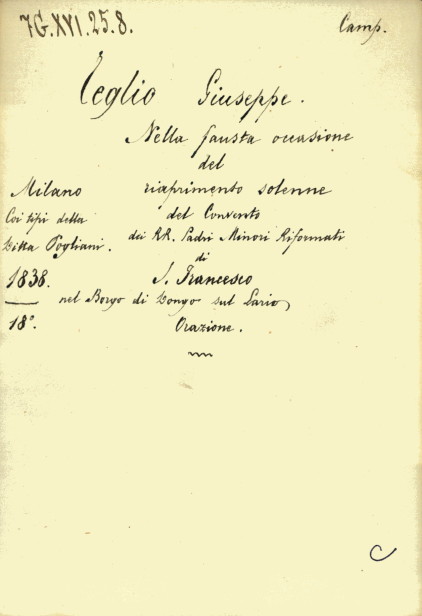 7G.XVI.25.8.
Camp.
Teglio Giuseppe.
Nella fausta occasione
del
riaprimento solenne
del Convento
dei RR. Padri Minori Riformati
di
S. Francesco
nel Borgo di Dongo sul Lario,
Orazione.
Milano
Coi tipi della
Ditta Pogliani.
1838.
18°.
C